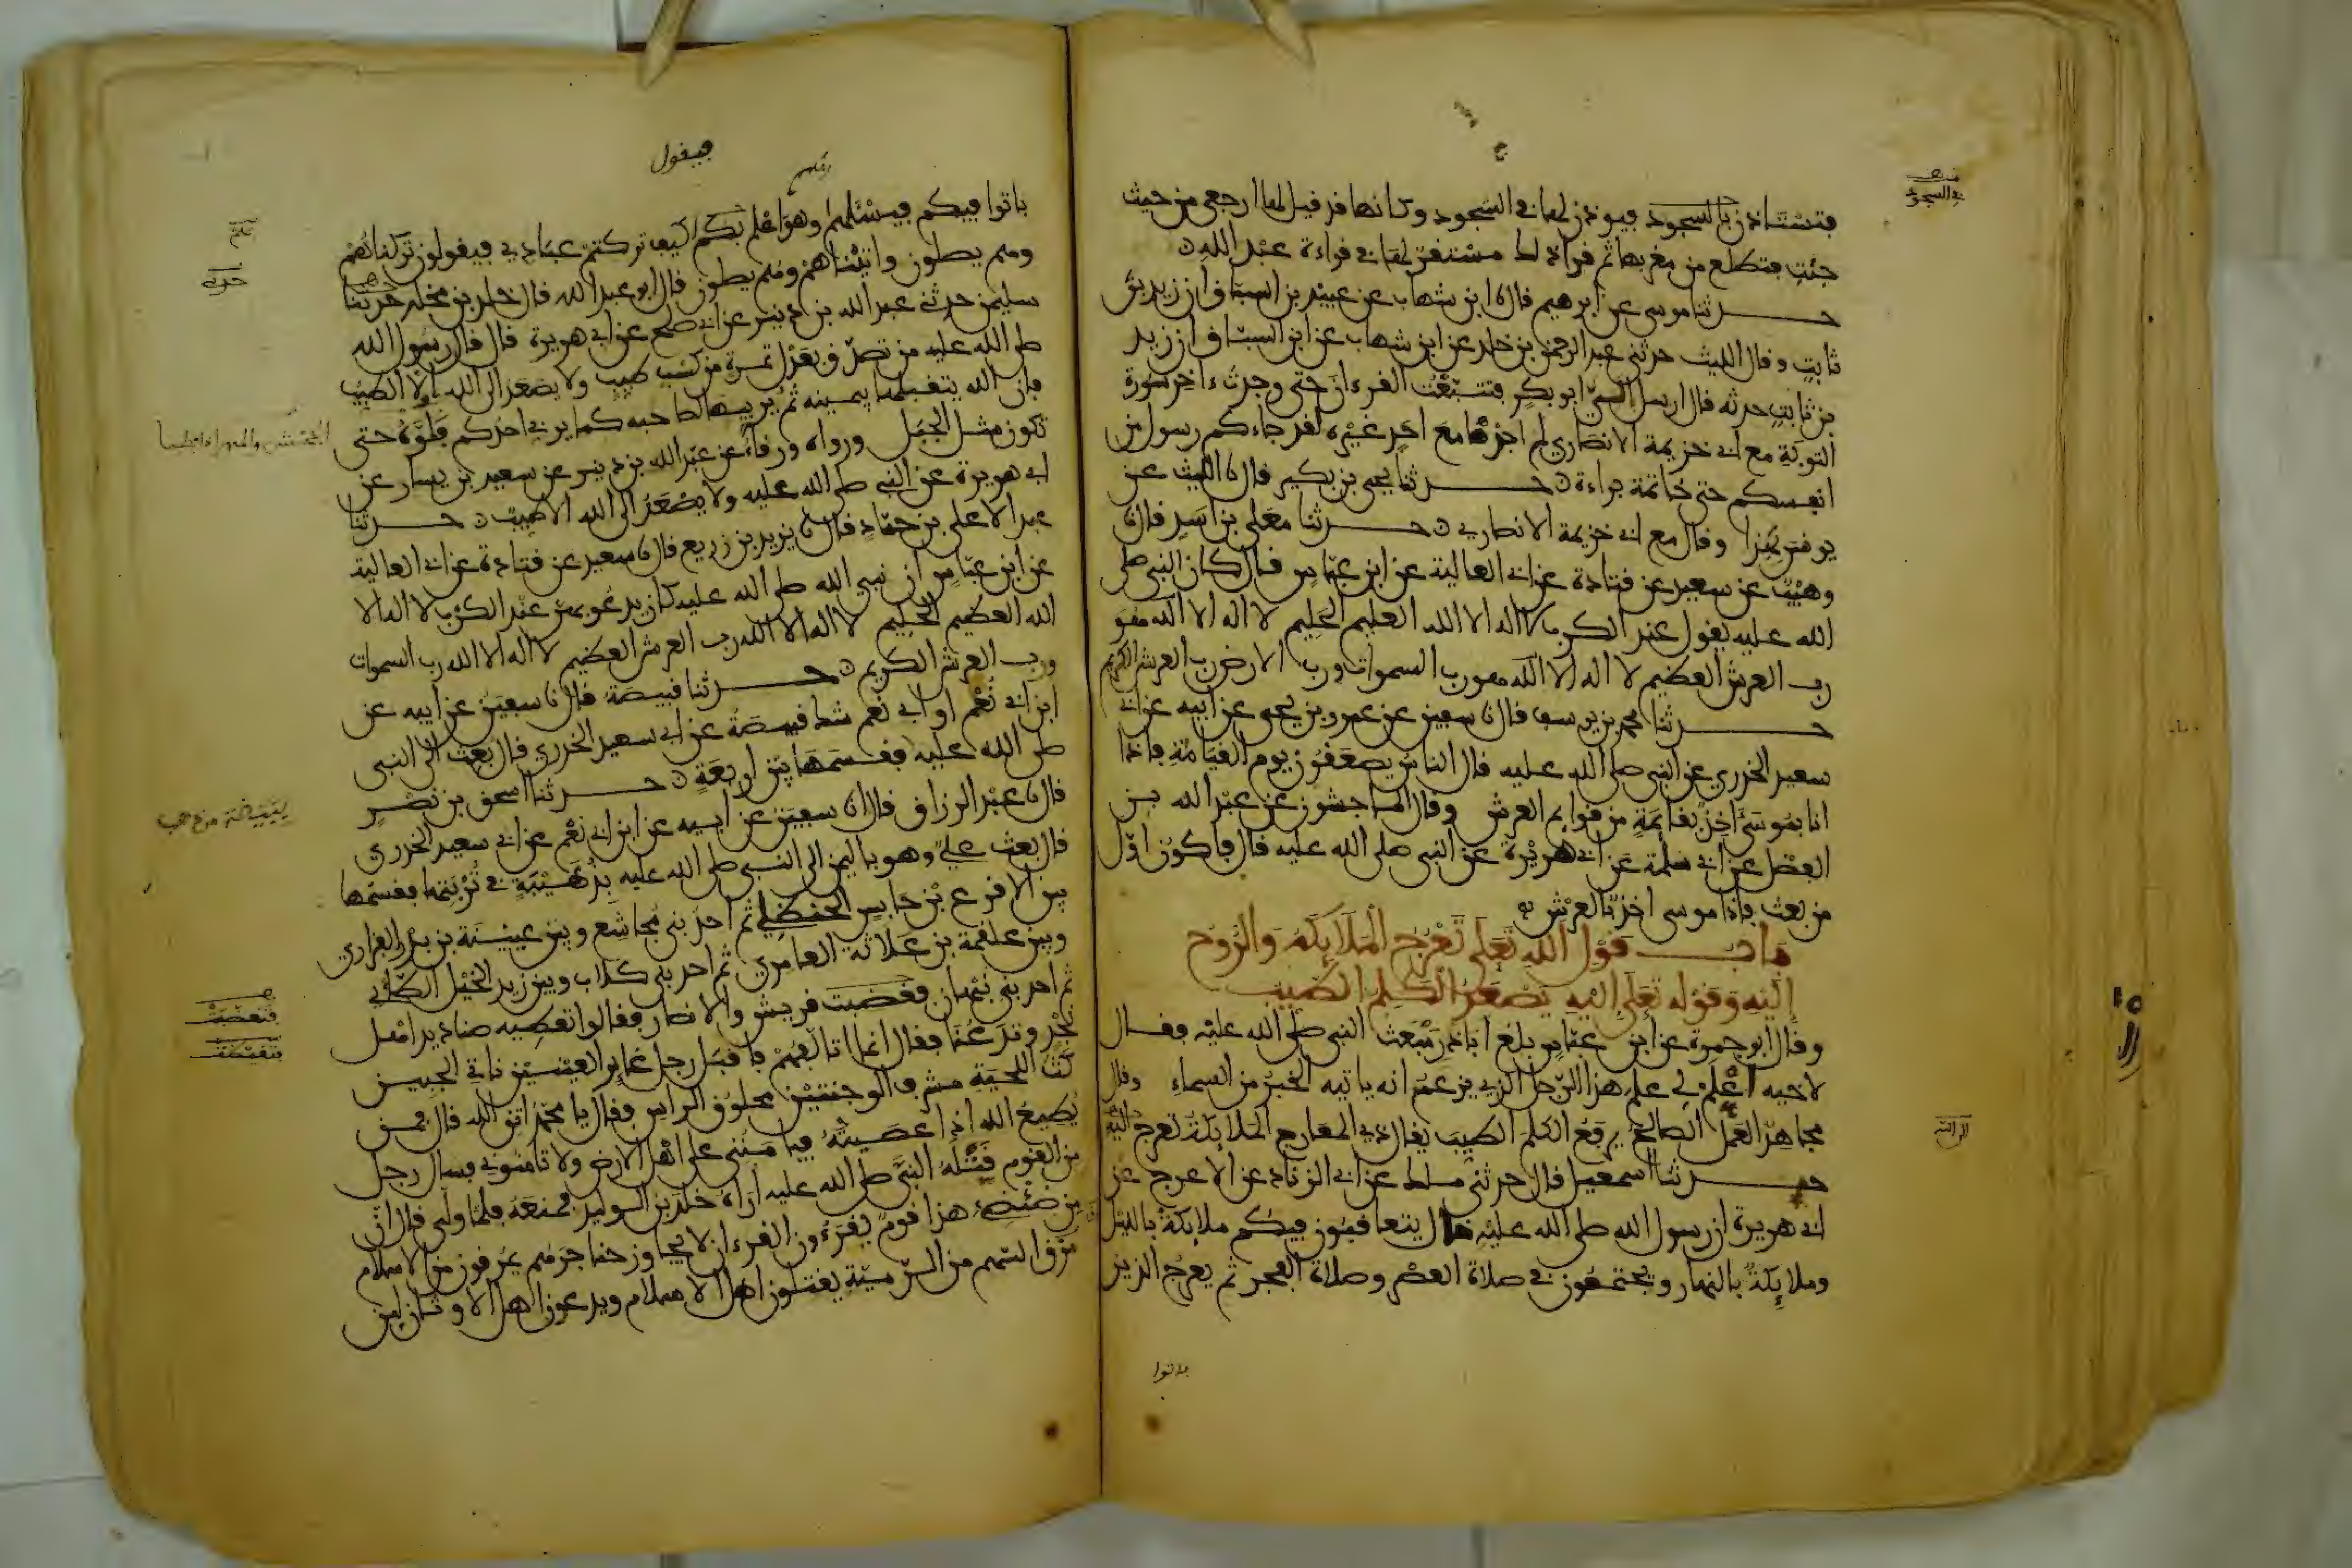 فتستاذن بالسجود فيوذن لها في السجود وكانها قد قيل لها ارجعي من حيث
جئت فتطلع من مغربها ثم قرا ذلك مستقر لها في قراءة عبد الله
حدثنا موسى عن ابرهيم قال نا ابن شهاب عن عبيد بن السباق ان زيد بن
ثابت وقال الليث حدثني عبد الرحمن بن خلد عن ابن شهاب عن ابن السباق ان زيد
بن ثابت حدثه قال ارسل الي ابو بكر فتتبعت القرءان حتى وجدت ءاخر سورة
التوبة مع ابي خزيمة الانصاري لم اجدها مع احد غيره لقد جاءكم رسول من
انفسكم حتى خاتمة براءة حدثنا يحيى بن بكير قال نا الليث عن
يونس بهذا وقال مع ابي خزيمة الانصاري حدثنا معلى بن اسد قال نا
وهيب عن سعيد عن قتادة عن ابي العالية عن ابن عباس قال كان النبي صلى
الله عليه يقول عند الكرب لا اله الا الله العليم الحليم لا اله الا الله هو
رب العرش العظيم لا اله الا الله هو رب السموات ورب الارض رب العرش الكريم
حدثنا محمد بن يوسف قال نا سفين عن عمرو بن يحيى عن ابيه عن ابي
سعيد الخدري عن النبي صلى الله عليه قال الناس يصعقون يوم القيامة فاذا
انا بموسى ءاخذ بقايمة من قوايم العرش وقال الماجشون عن عبد الله بن
الفضل عن ابي سلمة عن ابي هريرة عن النبي صلى الله عليه قال فاكون اول
من بعث فاذا موسى اخذ بالعرش
باب قول الله تعلى تعرج الملايكة والروح
إليه وقوله تعلى إليه يصعد الكلم الطيب
وقال ابو جمرة عن ابن عباس بلغ ابا ذر مبعث النبي صلى الله عليه فقال
لاخيه اعلم لي علم هذا الرجل الذي يزعم انه ياتيه الخبر من السماء وقال
مجاهد العمل الصالح يرفع الكلم الطيب يقال ذي المعارج الملايكة تعرج اليه
حدثنا اسمعيل قال حدثني ملك عن ابي الزناد عن الاعرج عن
ابي هريرة ان رسول الله صلى الله عليه قال يتعاقبون فيكم ملايكة بالليل
وملايكة بالنهار ويجتمعون في صلاة العصر وصلاة الفجر ثم يعرج الذين
باتوا
في السجود
فيقول
باتوا فيكم فيسئلهم وهو اعلم بكم كيف تركتم عبادي فيقولون تركناهم
وهم يصلون واتيناهم وهم يصلون قال ابو عبد الله قال خلد بن مخلد حدثنا
سليمن حدثني عبد الله بن دينر عن ابي صلح عن ابي هريرة قال قال رسول الله
صلى الله عليه من تصدق بعدل تمرة من كسب طيب ولا يصعد الى الله الا الطيب
فان الله يتقبلها بيمينه ثم يربيها لصاحبه كما يربي احدكم فلوه حتى
تكون مثل الجبل ورواه ورقاء عن عبد الله بن دينر عن سعيد بن يسار عن
ابي هريرة عن النبي صلى الله عليه ولا يصعد الى الله الا طيب حدثنا
عبد الاعلى بن حماد قال نا يزيد بن زريع قال نا سعيد عن قتادة عن ابي العالية
عن ابن عباس ان نبي الله صلى الله عليه كان يدعو بهن عند الكرب لا اله الا
الله العظيم الحليم لا اله الا الله رب العرش العظيم لا اله الا الله رب السموات
ورب العرش الكريم حدثنا قبيصة قال نا سفين عن ابيه عن
ابن ابي نعم او ابي نعم شك قبيصة عن ابي سعيد الخدري قال بعث الى النبي
صلى الله عليه فقسمها بين اربعة حدثنا اسحق بن نصر
قال نا عبد الرزاق قال انا سفين عن ابيه عن ابن ابي نعم عن ابي سعيد الخدري
قال بعث علي وهو باليمن الى النبي صلى الله عليه بذهيبة في تربتها فقسمها
بين الاقرع بن حابس الحنظلي ثم احد بني مجاشع وبين عيينة بن بدر الفزاري
وبين علقمة بن علاثة العامري ثم احد بني كلاب وبين زيد الخيل الطائي
ثم احد بني نبهان فغضبت قريش والانصار فقالوا تعطيه صناديد اهل
نجد وتدعنا فقال انما اتالفهم فاقبل رجل غاير العينين ناتي الجبين
كث اللحية مشرف الوجنتين محلوق الراس فقال يا محمد اتق الله قال فمن
يطيع الله اذا عصيته فيامنني على اهل الارض ولا تامنوني فسال رجل
من القوم قتله النبي صلى الله عليه اراه خلد بن الوليد فمنعه فلما ولى قال ان
من ضئضئ هذا قوم يقرءون القرءان لا يجاوز حناجرهم يمرقون من الاسلام
مرق السهم من الرمية يقتلون اهل الاسلام ويدعون اهل الاوثان لين